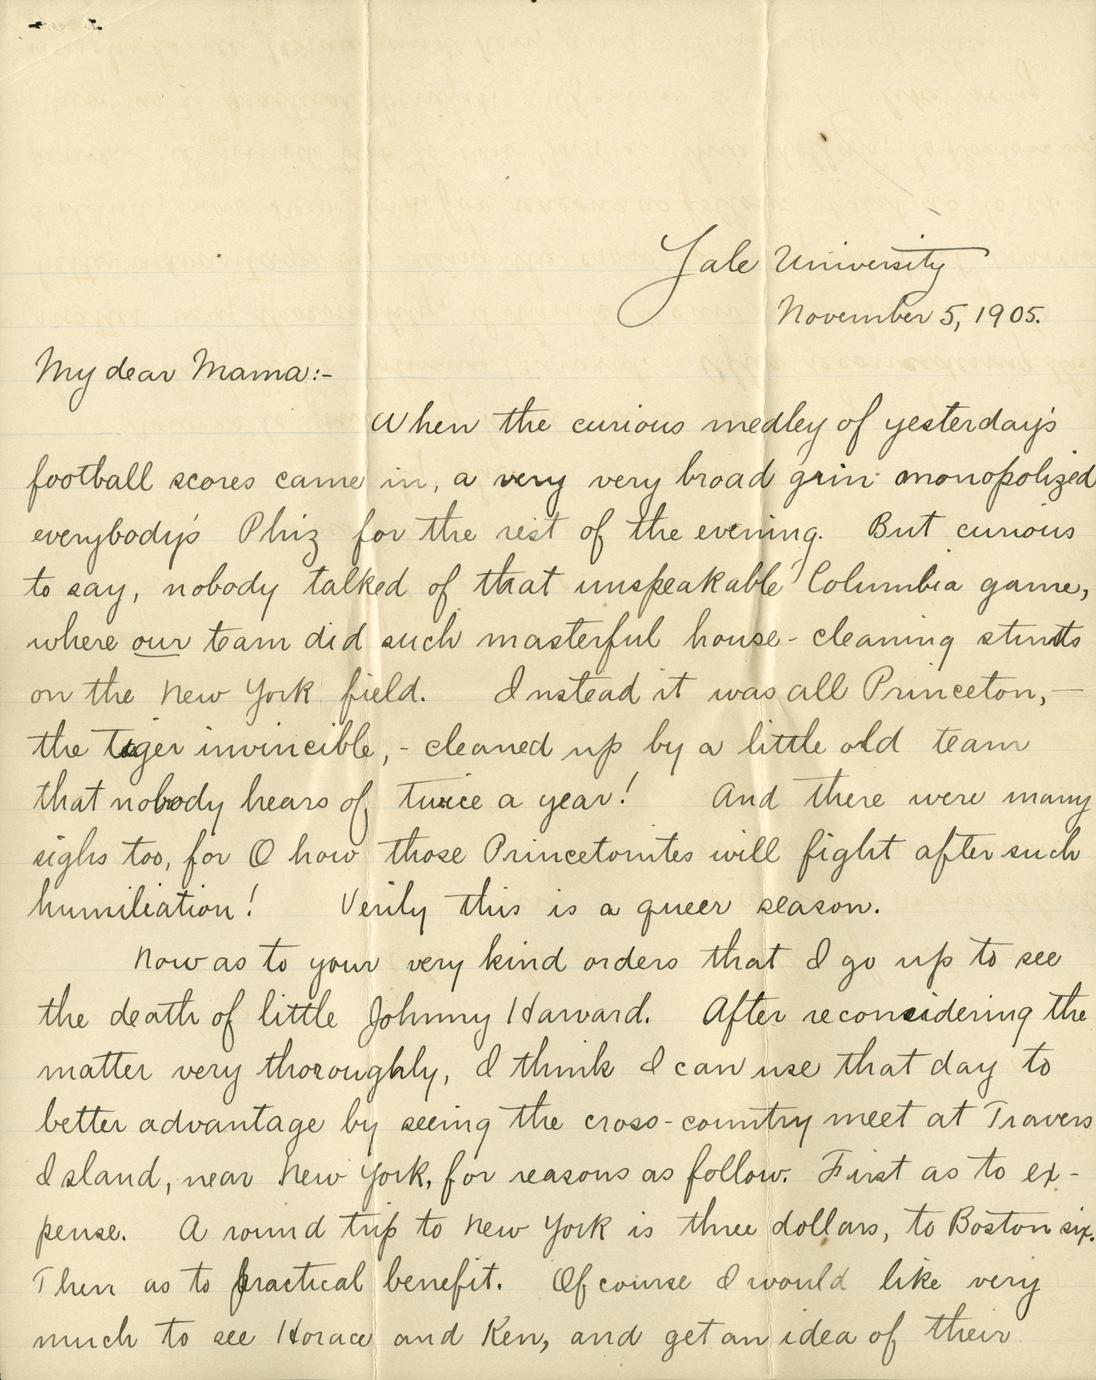 Yale University
November 5, 1905.
My dear Mama:-
When the curious medley of yesterday's
football scores came in, a very very broad grin monopolized
everybody's Phiz for the rest of the evening. But curious
to say, nobody talked of that unspeakable Columbia game,
where our team did such masterful house-cleaning stunts
on the New York field. Instead it was all Princeton,—
the tiger invincible,- cleaned up by a little old team
that nobody hears of twice a year! And there were many
sighs too, for O how those Princetonites will fight after such
humiliation! Verily this is a queer season.
Now as to your very kind orders that I go up to see
the death of little Johnny Harvard. After reconsidering the
matter very thoroughly, I think I can use that day to
better advantage by seeing the cross-country meet at Travers
Island, near New York, for reasons as follow. First as to ex-
pense. A round trip to New York is three dollars, to Boston six.
Then as to practical benefit. Of course I would like very
much to see Horace and Ken, and get an idea of their